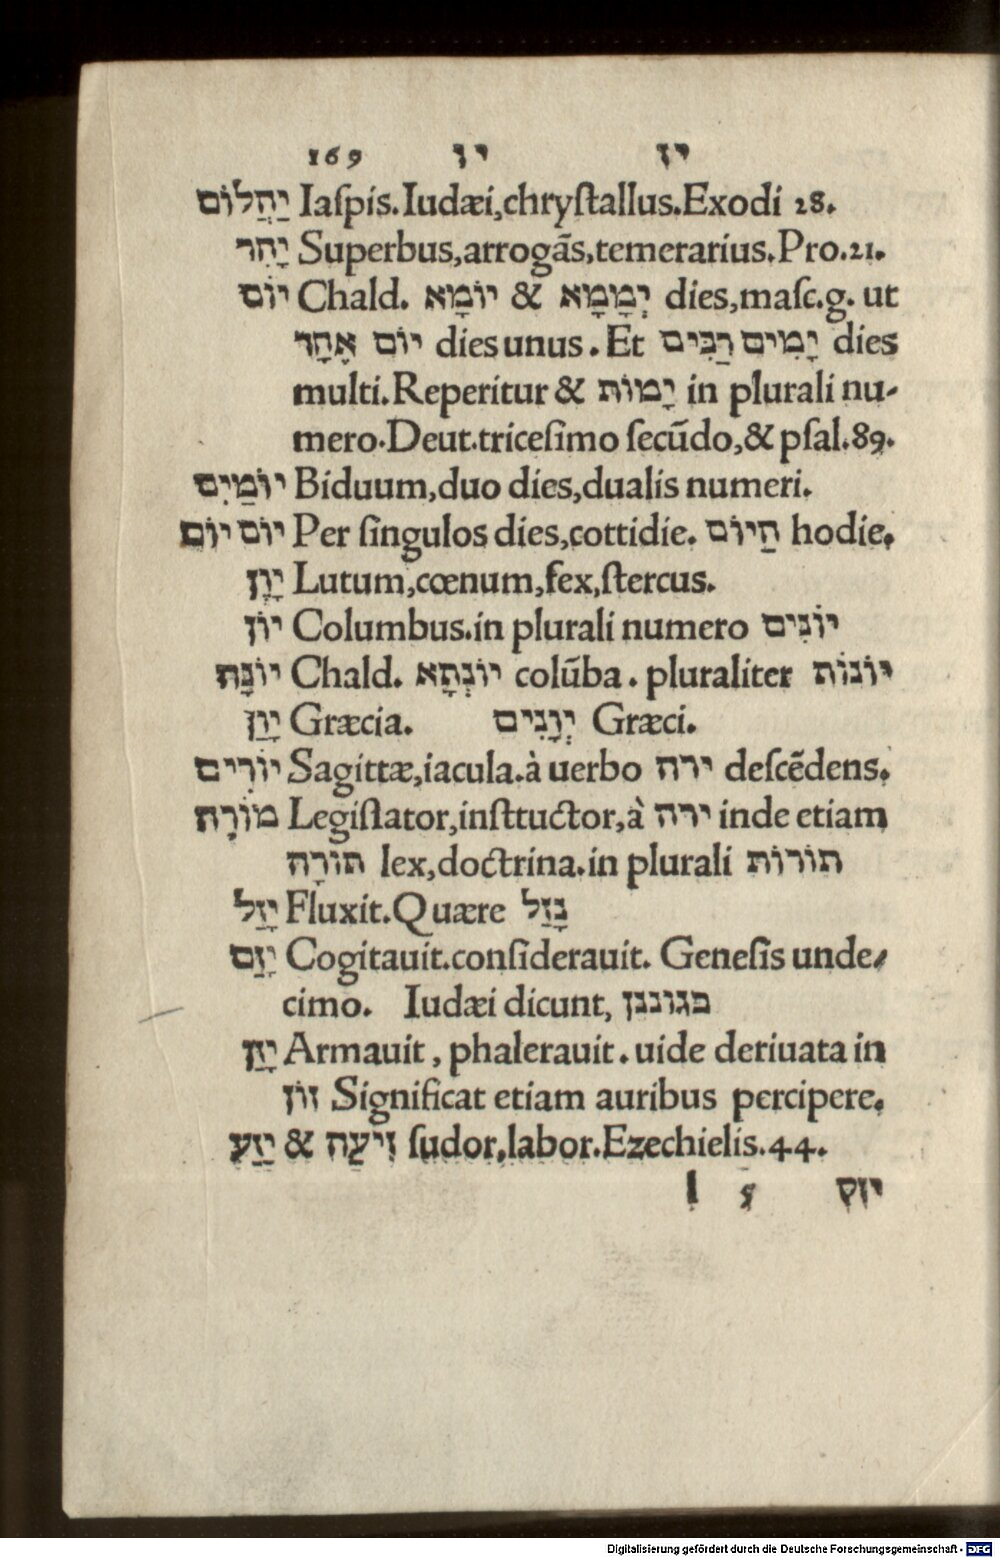 169 יו יז
יַהֲלוֹם Iaſpis.Iudæi,chryſtallus.Exodi 28.
יָהִר Superbus,arrogãs,temerarius.Pro.21.
יוֹם Chald. יוֹמָא & יְמָמָא dies,maſc.g. ut
יוֹם אֶחָד dies unus. Et יָמִים רַבִּים dies
multi.Reperitur & יָמוֹת in plurali nu-
mero.Deut.triceſimo ſecũdo,& pſal.89.
יוֹמַיִם Biduum,duo dies,dualis numeri.
יוֹם יוֹם Per ſingulos dies,cottidie. הַיּוֹם hodie.
יָוֵן Lutum,cœnum,fex,ſtercus.
יוֹן Columbus.in plurali numero יוֹנִים
יוֹנָה Chald. יוֹנְתָא colũba. pluraliter יוֹנוֹת
יָוָן Græcia. יְוָנִים Græci.
יוֹרִים Sagittæ,iacula.à uerbo ירה deſcẽdens.
מוֹרֶה Legiſlator,inſtructor,à ירה inde etiam
תּוֹרָה lex,doctrina.in plurali תורות
יָזַל Fluxit.Quære נָזַל
יָזַם Cogitauit.conſiderauit. Geneſis unde-
cimo. Iudæi dicunt,
יָזַן Armauit, phalerauit. uide deriuata in
זוֹן Significat etiam auribus percipere.
יֶזַע & זֵיעָה ſudor,labor.Ezechielis.44.
l 5 יזק
Digitalisierung gefördert durch die Deutsche Forschungsgemeinschaft - DFG